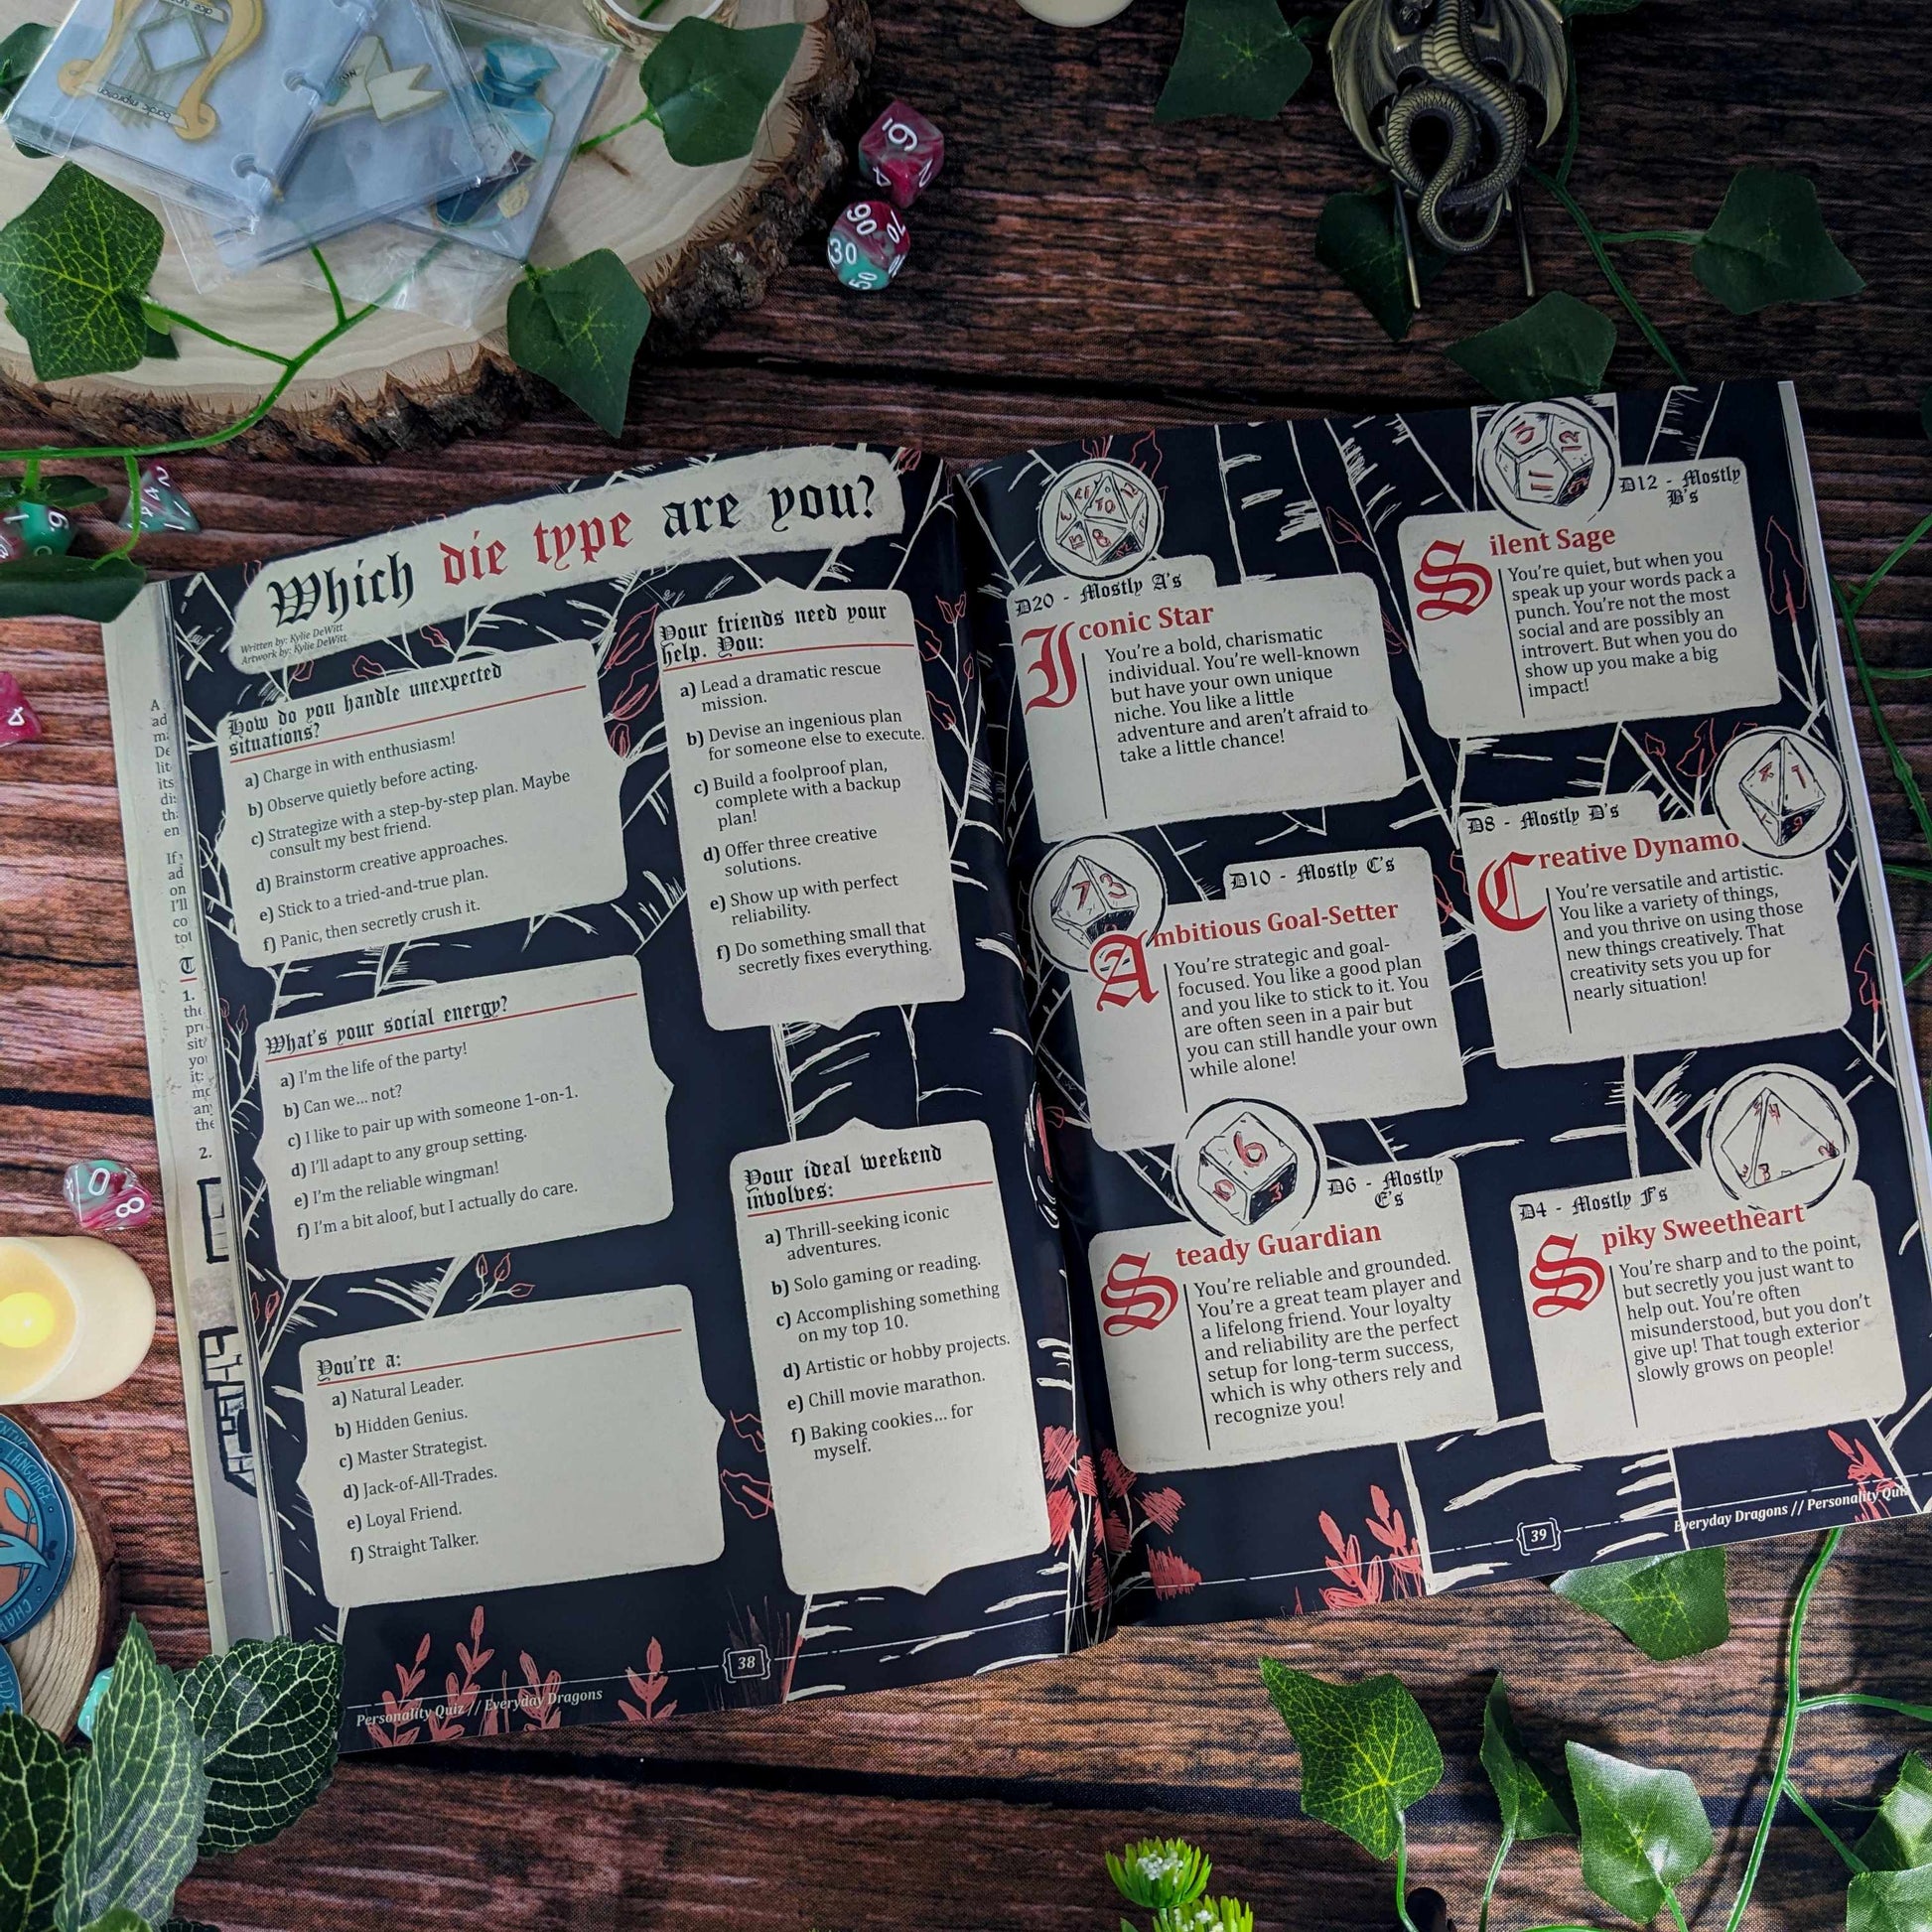 Which die type are you?
Written by: Kylie DeWitt
Artwork by: Kylie DeWitt
How do you handle unexpected
situations?
a) Charge in with enthusiasm!
b) Observe quietly before acting.
c) Strategize with a step-by-step plan. Maybe
consult my best friend.
d) Brainstorm creative approaches.
e) Stick to a tried-and-true plan.
f) Panic, then secretly crush it.
What's your social energy?
a) I'm the life of the party!
b) Can we... not?
c) I like to pair up with someone 1-on-1.
d) I'll adapt to any group setting.
e) I'm the reliable wingman!
f) I'm a bit aloof, but I actually do care.
You're a:
a) Natural Leader.
b) Hidden Genius.
c) Master Strategist.
d) Jack-of-All-Trades.
e) Loyal Friend.
f) Straight Talker.
Your friends need your
help. You:
a) Lead a dramatic rescue
mission.
b) Devise an ingenious plan
for someone else to execute.
c) Build a foolproof plan,
complete with a backup
plan!
d) Offer three creative
solutions.
e) Show up with perfect
reliability.
f) Do something small that
secretly fixes everything.
Your ideal weekend
involves:
a) Thrill-seeking iconic
adventures.
b) Solo gaming or reading.
c) Accomplishing something
on my top 10.
d) Artistic or hobby projects.
e) Chill movie marathon.
f) Baking cookies... for
myself.
38
Personality Quiz // Everyday Dragons
D20 - Mostly A's
Iconic Star
You're a bold, charismatic
individual. You're well-known
but have your own unique
niche. You like a little
adventure and aren't afraid to
take a little chance!
D12 - Mostly
B's
Silent Sage
You're quiet, but when you
speak up your words pack a
punch. You're not the most
social and are possibly an
introvert. But when you do
show up you make a big
impact!
D10 - Mostly C's
Ambitious Goal-Setter
You're strategic and goal-
focused. You like a good plan
and you like to stick to it. You
are often seen in a pair but
you can still handle your own
while alone!
D8 - Mostly D's
Creative Dynamo
You're versatile and artistic.
You like a variety of things,
and you thrive on using those
new things creatively. That
creativity sets you up for
nearly situation!
D6 - Mostly
E's
Steady Guardian
You're reliable and grounded.
You're a great team player and
a lifelong friend. Your loyalty
and reliability are the perfect
setup for long-term success,
which is why others rely and
recognize you!
D4 - Mostly F's
Spiky Sweetheart
You're sharp and to the point,
but secretly you just want to
help out. You're often
misunderstood, but you don't
give up! That tough exterior
slowly grows on people!
39
Everyday Dragons // Personality Quiz